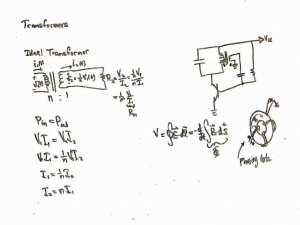 Transformers
Ideal Transformer
I₁(t)
I₂(t)
V₁(t)
n : 1
R₂ = V₂/I₂ = (1/n V₁)/(n I₁)
Vcc
Pin = Pout
V₁I₁ = V₂I₂
V₁I₁ = 1/n V₁I₂
I₁ = 1/n I₂
I₂ = n I₁
V = ∮E·dl = -d/dt ∫B·ds
Φ
Phasing dots